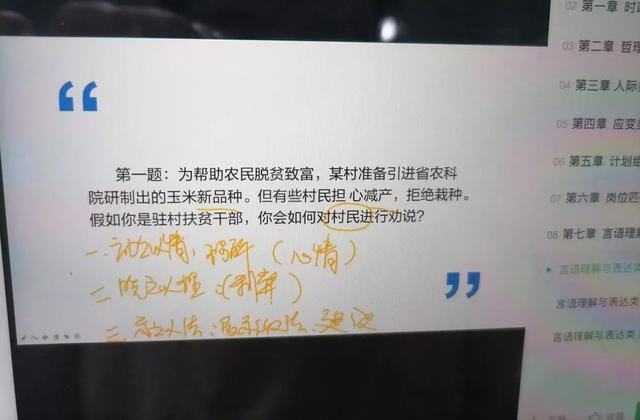 第一题：为帮助农民脱贫致富，某村准备引进省农科
院研制出的玉米新品种。但有些村民担 心减产，拒绝栽种。
假如你是驻村扶贫干部，你会如何对村民进行劝说？
一、动之以情，（心情）
二、晓之以理：（利害）
三、建议
02 第一章 时政
03 第二章 哲理
04 第三章 人际
05 第四章 应变
06 第五章 计划组
07 第六章 岗位匹
08 第七章 言语理解
言语理解与表达类
言语理解与表达类
言语理解与表达类